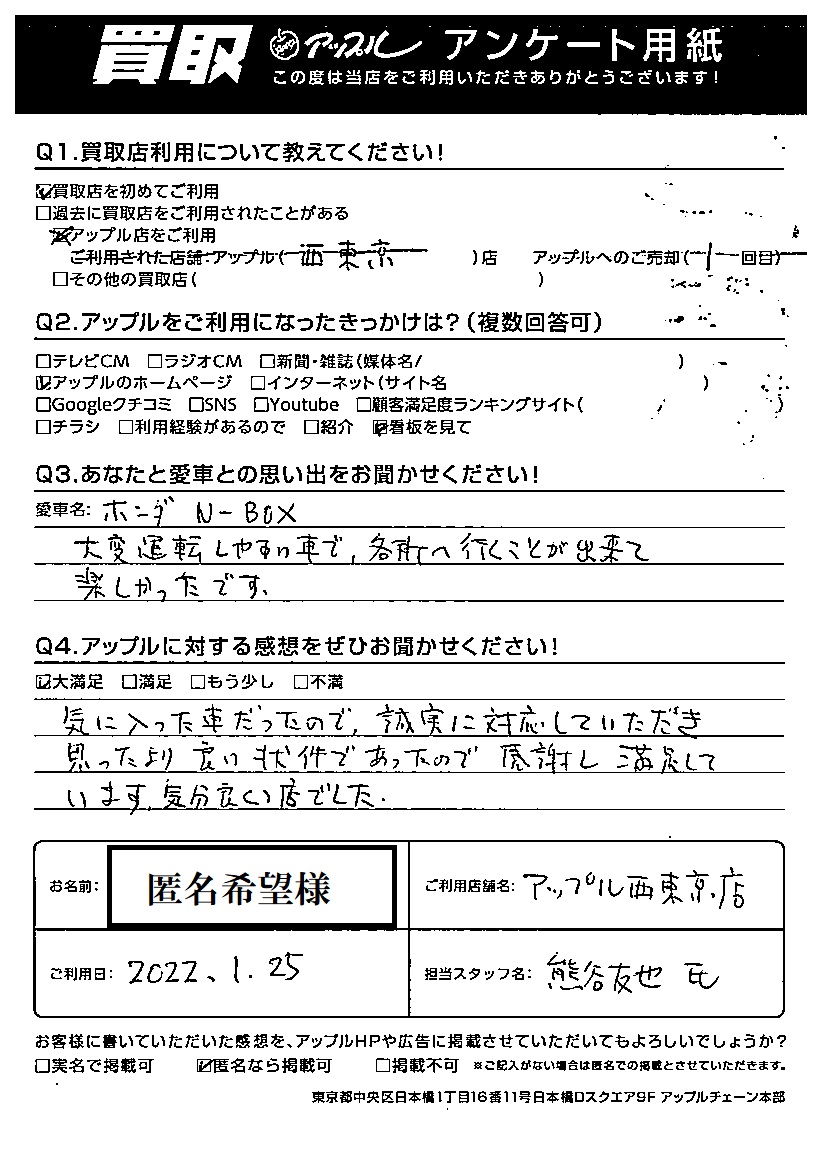 買取 アップル アンケート用紙
この度は当店をご利用いただきありがとうございます!
Q1.買取店利用について教えてください!
☑買取店を初めてご利用
□過去に買取店をご利用されたことがある
☒アップル店をご利用
ご利用された店舗:アップル( 西東京 )店 アップルへのご売却( 1 回目)
□その他の買取店( )
Q2.アップルをご利用になったきっかけは?(複数回答可)
□テレビCM □ラジオCM □新聞・雑誌(媒体名/ )
☑アップルのホームページ □インターネット(サイト名 )
□Googleクチコミ □SNS □Youtube □顧客満足度ランキングサイト( / )
□チラシ □利用経験があるので □紹介 ☑看板を見て
Q3.あなたと愛車との思い出をお聞かせください!
愛車名: ホンダ N-BOX
大変運転しやすい車で、各所へ行くことが出来て
楽しかったです。
Q4.アップルに対する感想をぜひお聞かせください!
☑大満足 □満足 □もう少し □不満
気に入った車だったので、誠実に対応していただき
思ったより良い状件であったので 感謝し 満足して
います。気分良い店でした.
お名前: 匿名希望様 ご利用店舗名: アップル西東京店
ご利用日: 2022、1.25 担当スタッフ名: 熊谷友也 氏
お客様に書いていただいた感想を、アップルHPや広告に掲載させていただいてもよろしいでしょうか?
□実名で掲載可 ☑匿名なら掲載可 □掲載不可 ※ご記入がない場合は匿名での掲載とさせていただきます。
東京都中央区日本橋1丁目16番11号日本橋Dスクエア9F アップルチェーン本部